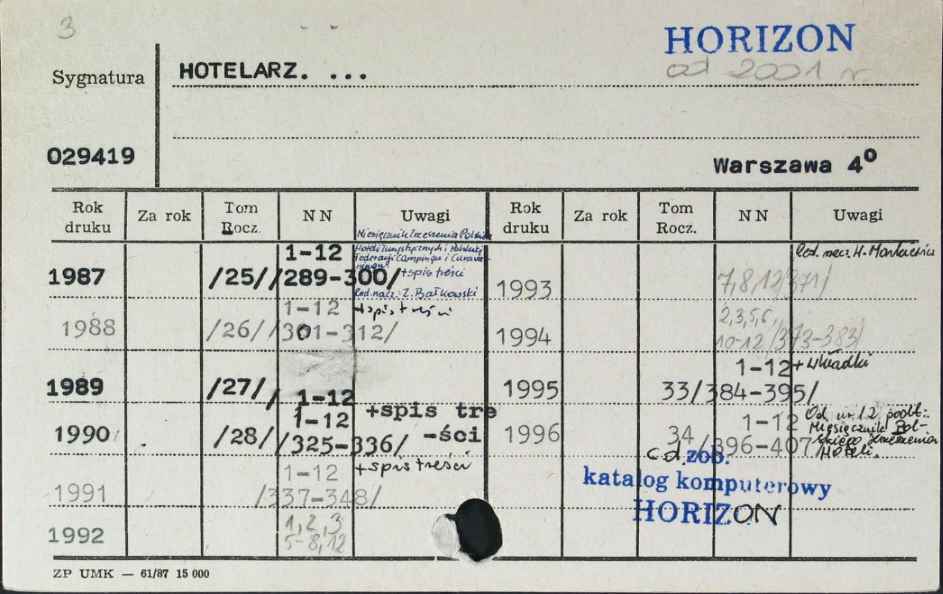 3
HORIZON
od 2001 r.
Sygnatura
HOTELARZ. ...
029419
Warszawa 4⁰
Rok druku | Za rok | Tom Rocz. | N N | Uwagi | Rok druku | Za rok | Tom Rocz. | N N | Uwagi
Miesięcznik Zrzeszenia Polskich
Hoteli Turystycznych i Polskiej
Federacji Campingu i Carava-
ningu
1987 /25/ 1-12 /289-300/ +spis treści
Red. nacz.: Z. Bałkowski
1988 /26/ 1-12 /301-312/ +spis treści
1989 /27/ / 1-12
1990 /28/ 1-12 /325-336/ +spis tre
-ści
1991 1-12 /337-348/ +spis treści
1992 1,2,3
5-8,12
Red. nacz. H.
1993 7,8,12/371/
1994 2,3,5,6,
10-12/373-383/
1995 33/ 1-12 /384-395/ +wkładki
1996 34 1-12 /396-407/
Od nr 12 podt.:
Miesięcznik Pol-
skiego Zrzeszenia
Hoteli.
c.d. zob.
katalog komputerowy
HORIZON
ZP UMK — 61/87 15 000